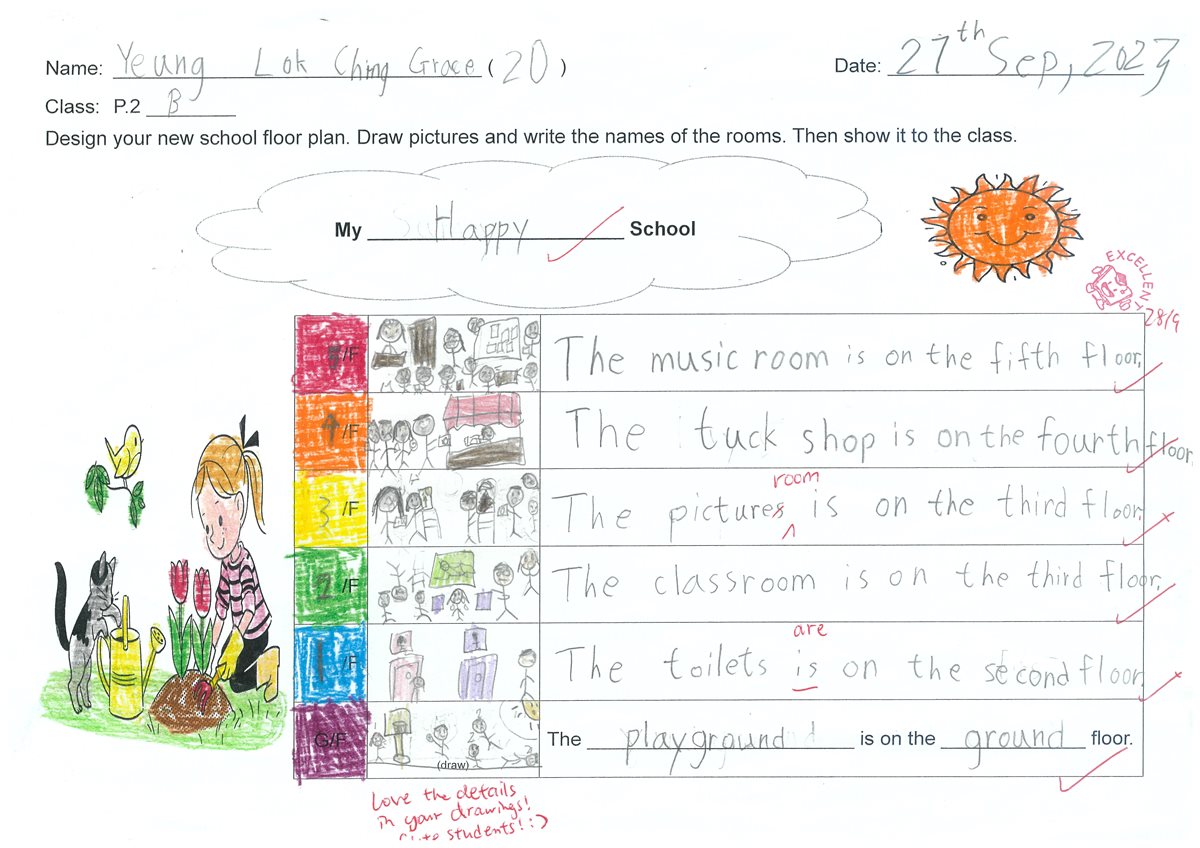 Name: Yeung Lok Ching Grace (20)
Date: 27th Sep, 2023
Class: P.2 B
Design your new school floor plan. Draw pictures and write the names of the rooms. Then show it to the class.
My Happy School
EXCELLENT
28/9
/F The music room is on the fifth floor.
4/F The tuck shop is on the fourth floor.
room
3/F The pictures is on the third floor.
2/F The classroom is on the third floor.
are
1/F The toilets is on the second floor.
G/F (draw) The playground is on the ground floor.
Love the details
in your drawings!
students! :)